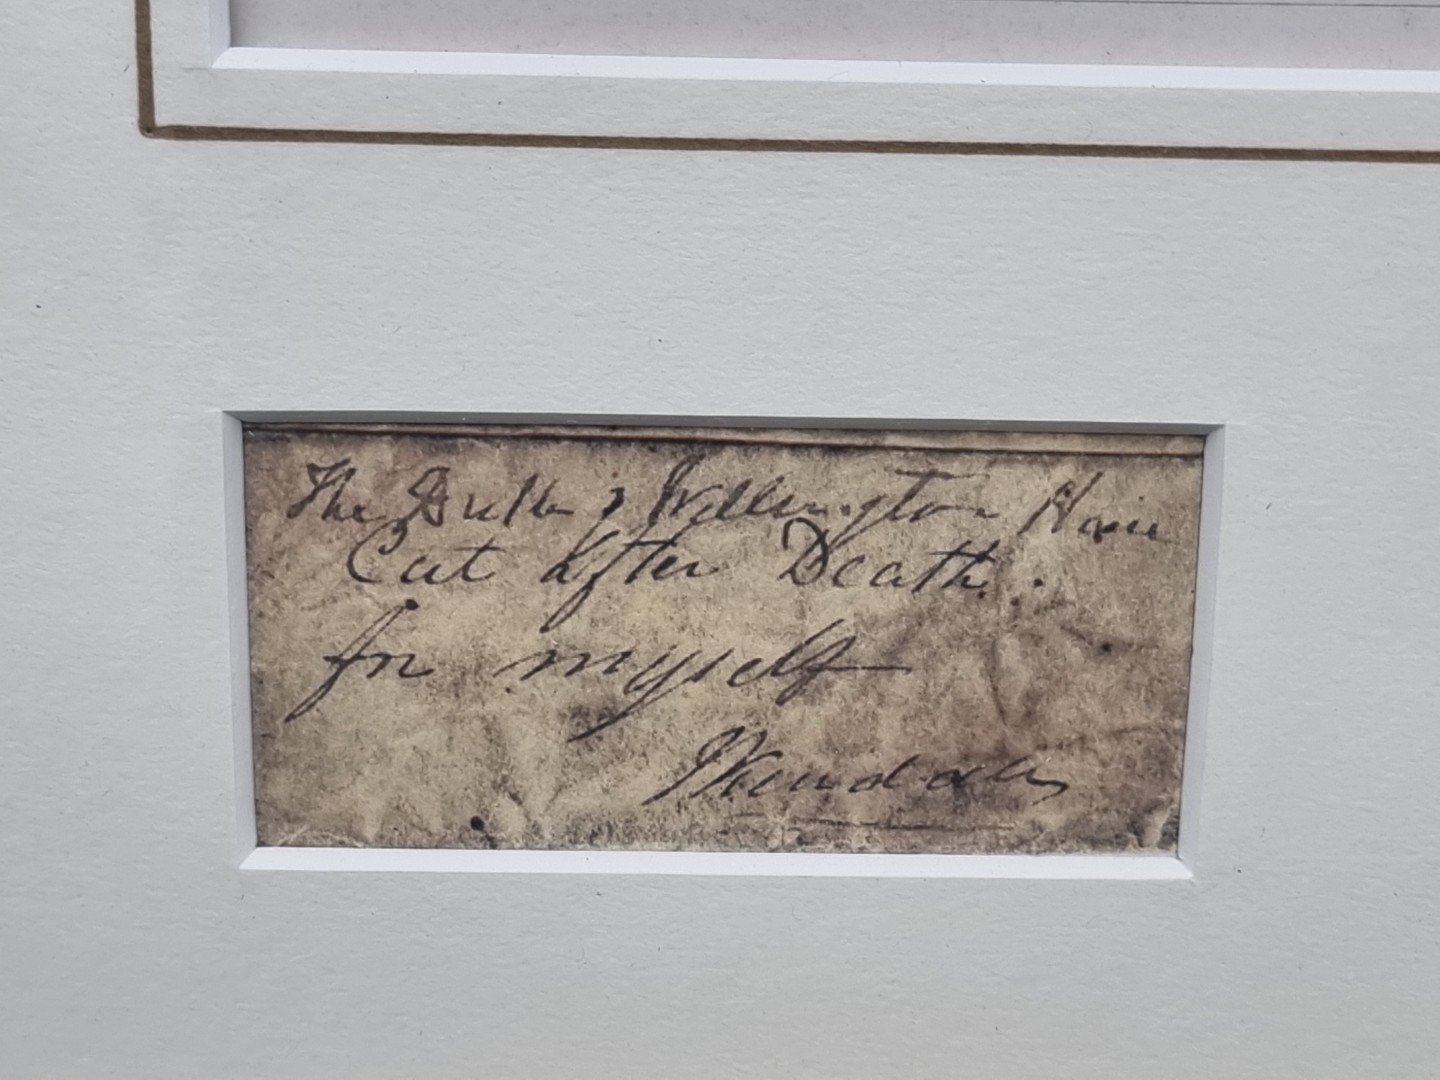 The Duke of Wellington Hair
Cut After Death.
for myself